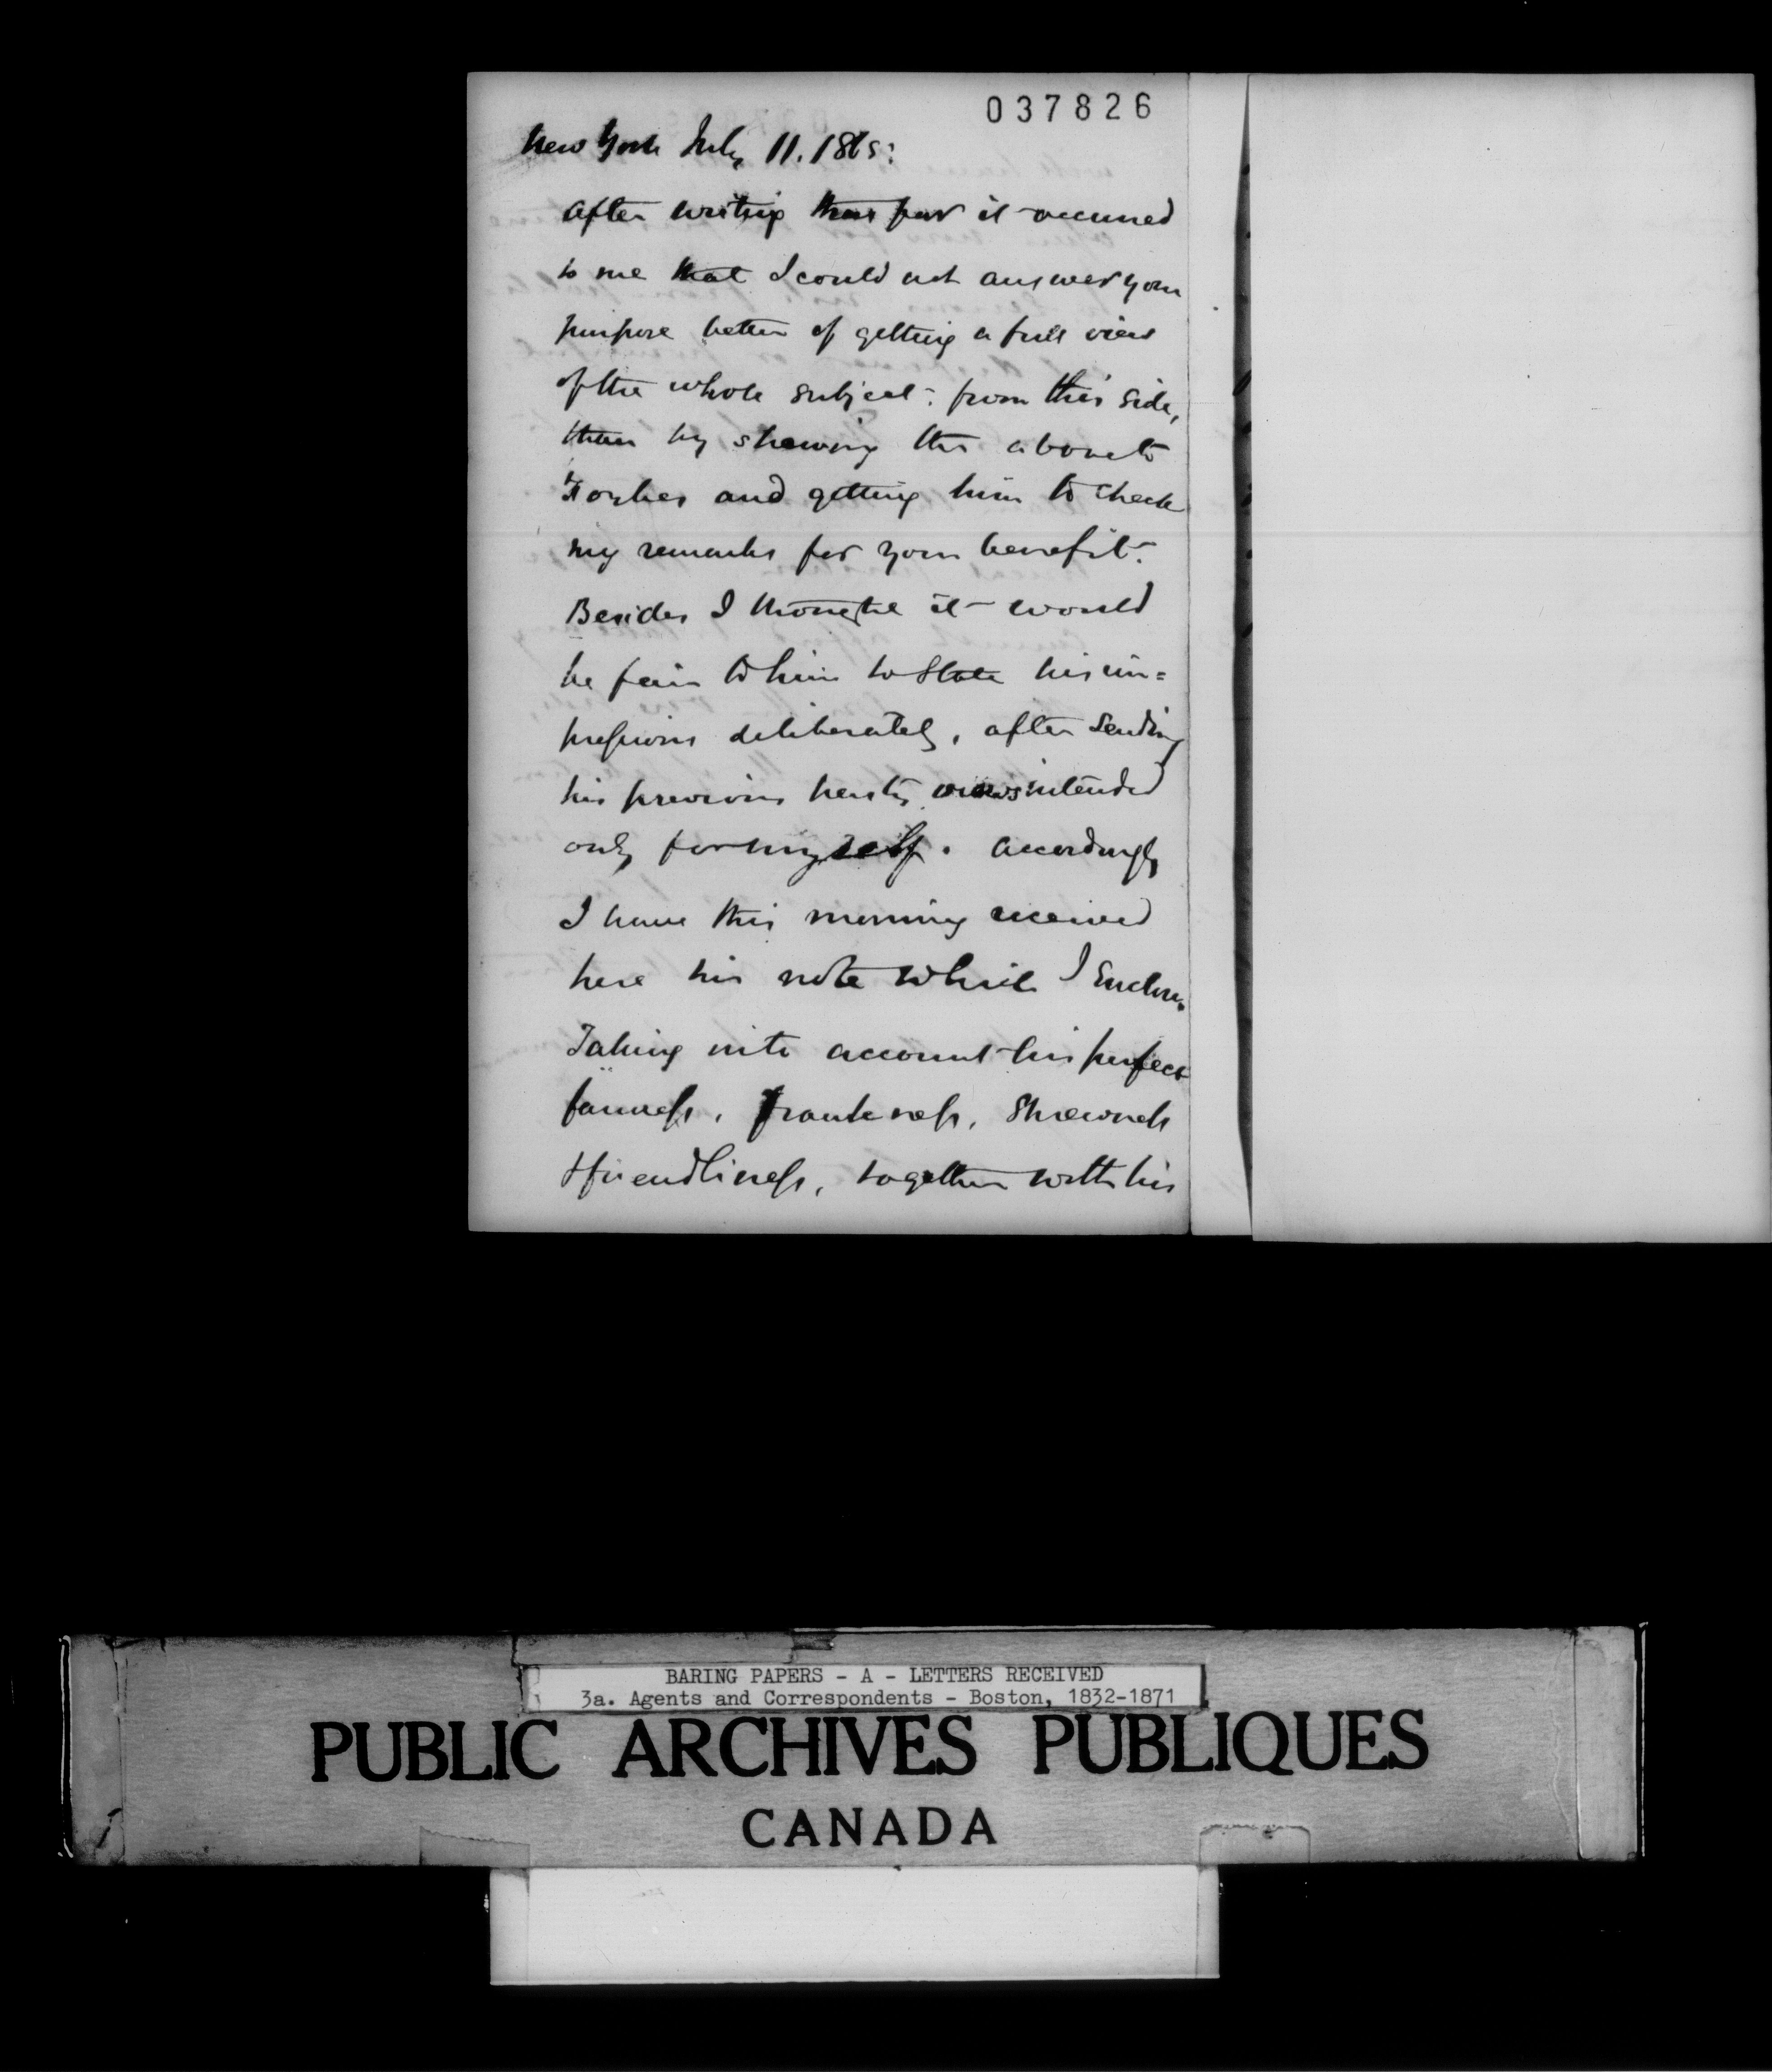 037826
New York July 11. 1865:
After writing thus far it occurred
to me that I could not answer your
purpose better of getting a full view
of the whole subject from this side,
than by shewing the above to
Forbes and getting him to check
my remarks for your benefit.
Besides I thought it would
be fair to him to state his im=
pressions deliberately, after sending
his previous hasty views intended
only for myself. Accordingly
I have this morning received
here his note which I enclose.
Taking into account his perfect
fairness, frankness, shrewness
& friendliness, together with his
BARING PAPERS - A - LETTERS RECEIVED
3a. Agents and Correspondents - Boston, 1832-1871
PUBLIC ARCHIVES PUBLIQUES
CANADA